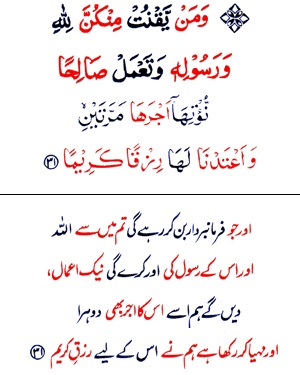 وَمَنْ يَّقْنُتْ مِنْكُنَّ لِلّٰهِ
وَرَسُوْلِهٖ وَتَعْمَلْ صَالِحًا
نُّؤْتِهَاۤ اَجْرَهَا مَرَّتَيْنِۙ
وَاَعْتَدْنَا لَهَا رِزْقًا كَرِيْمًا ۳۱
اور جو فرمانبردار بن کر رہے گی تم میں سے اللہ
اور اس کے رسول کی اور کرے گی نیک اعمال،
دیں گے ہم اسے اس کا اجر بھی دوہرا
اور مہیا کر رکھا ہے ہم نے اس کے لیے رزقِ کریم ۳۱